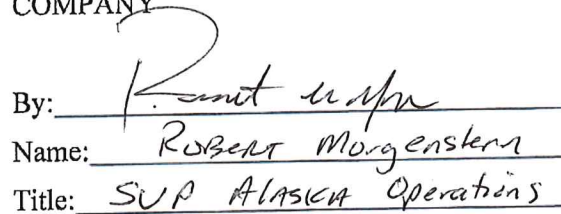 COMPANY
By:
Name: Robert Morgenstern
Title: SVP Alaska Operations